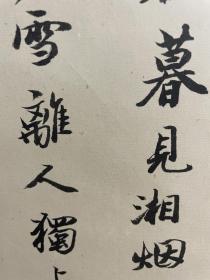 暮見湘烟
雪離人獨上